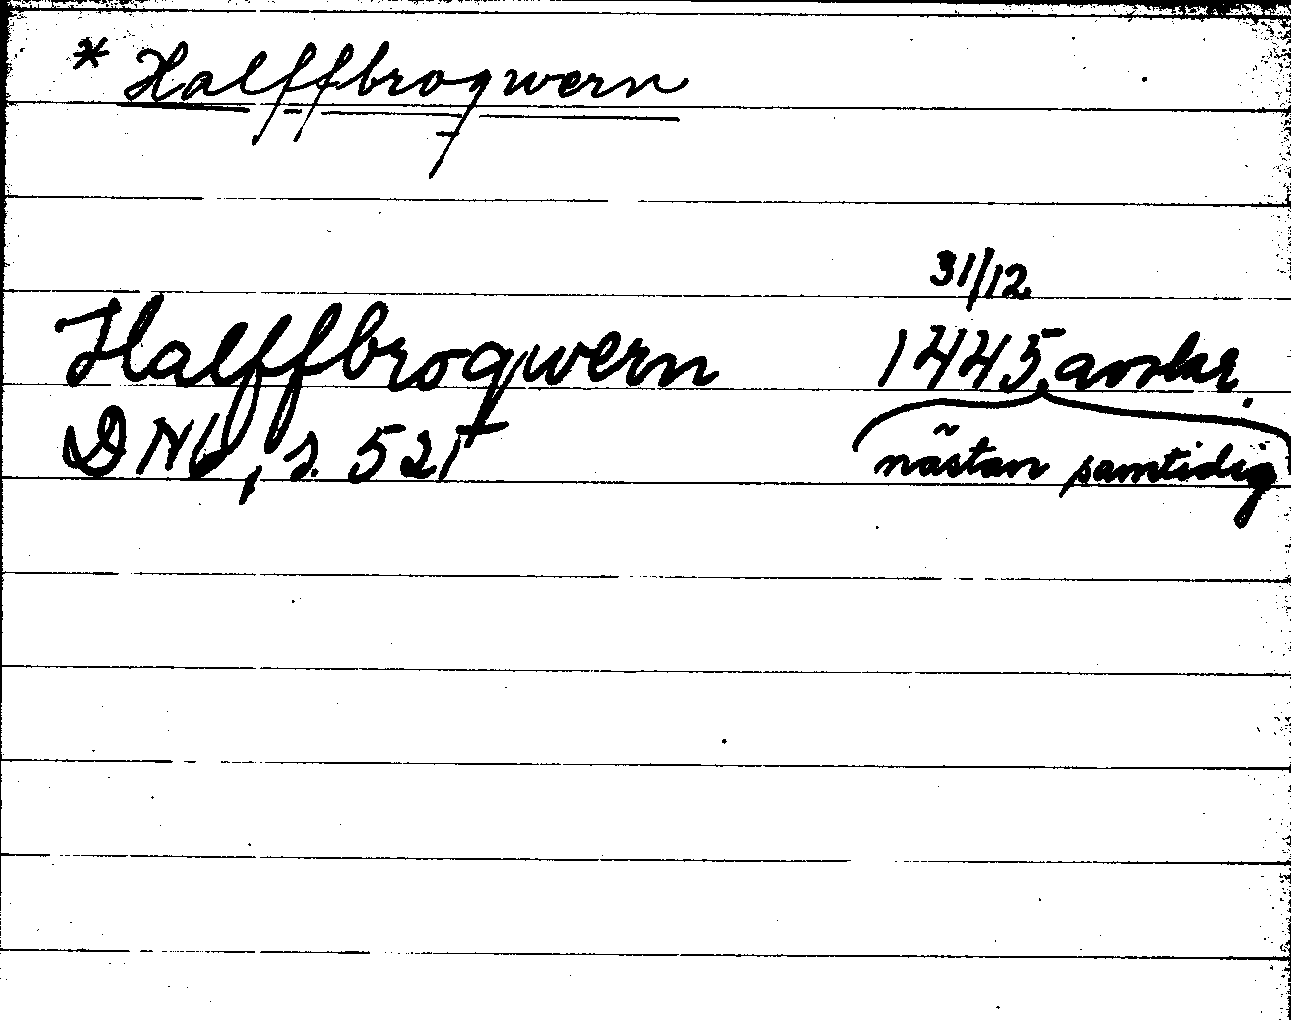 * Halffbroqwern
31/12
Halffbroqwern 1445 avskr.
DN6, s. 521 nästan samtidig